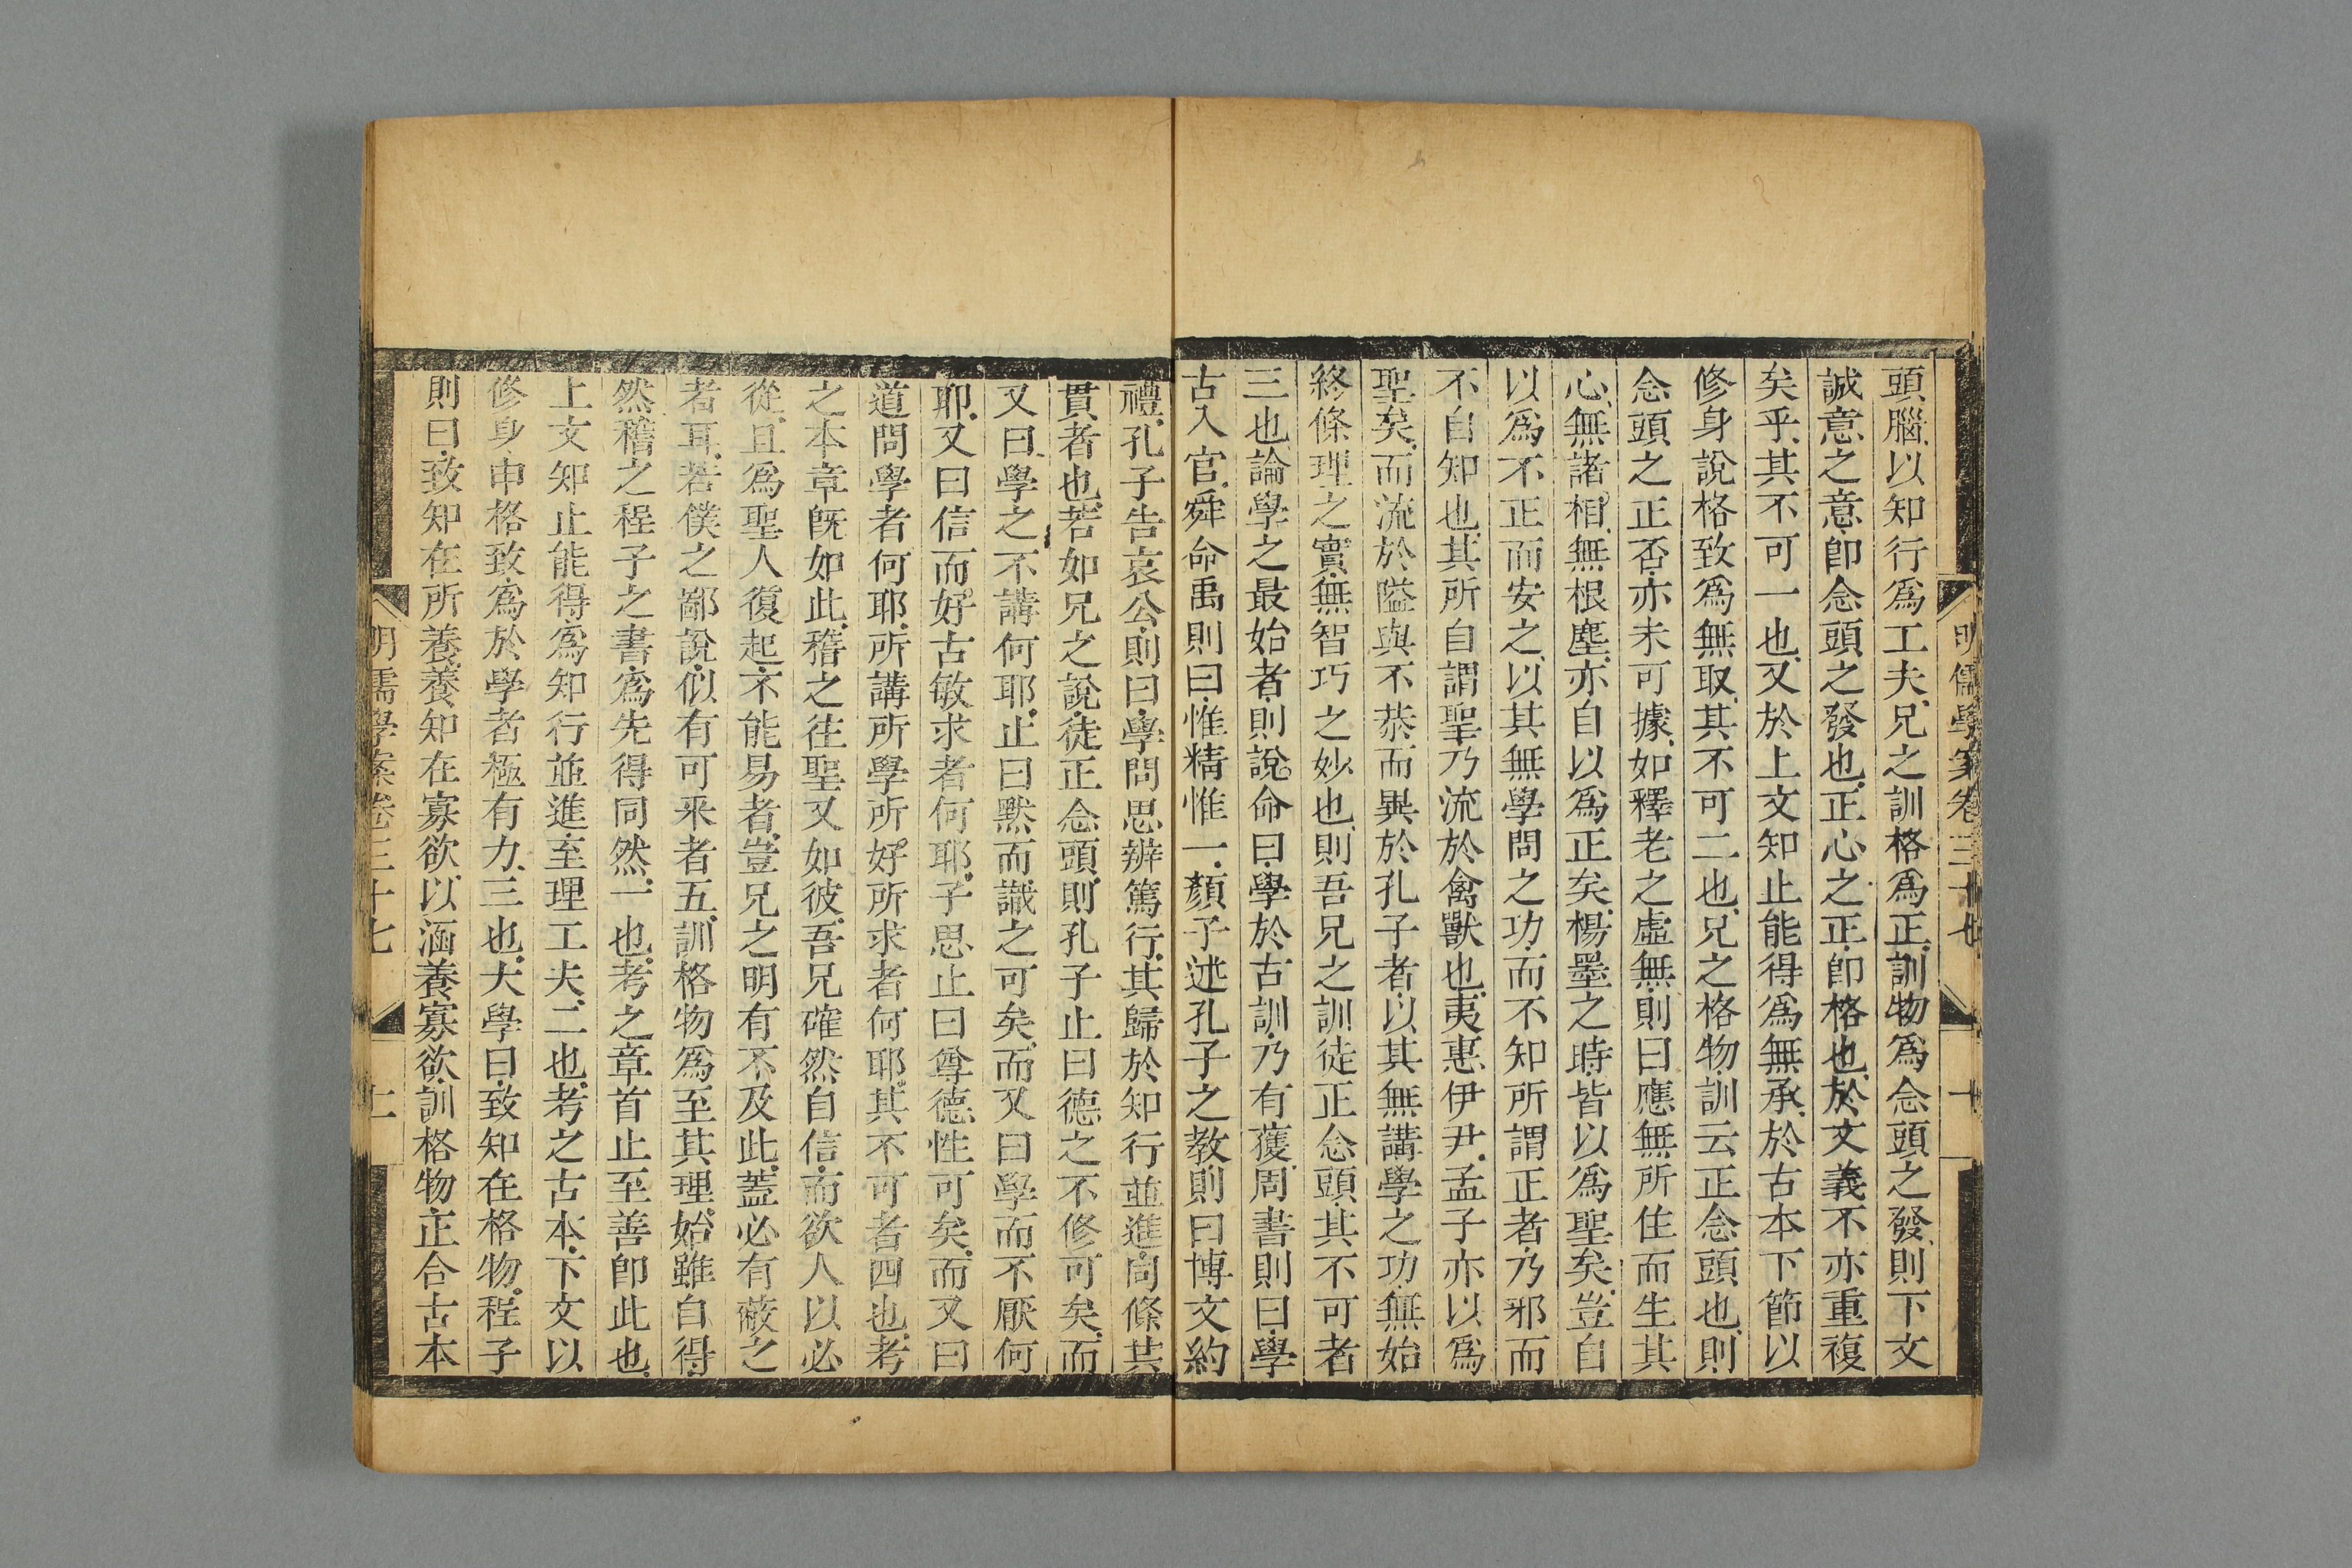 明儒學案卷三十七　十
頭腦以知行爲工夫兄之訓格爲正訓物爲念頭之發則下文
誠意之意卽念頭之發也正心之正卽格也於文義不亦重複
矣乎其不可一也又於上文知止能得爲無承於古本下節以
修身說格致爲無取其不可二也兄之格物訓云正念頭也則
念頭之正否亦未可據如釋老之虛無則曰應無所住而生其
心無諸相無根塵亦自以爲正矣楊墨之時皆以爲聖矣豈自
以爲不正而安之以其無學問之功而不知所謂正者乃邪而
不自知也其所自謂聖乃流於禽獸也夷惠伊尹孟子亦以爲
聖矣而流於隘與不恭而異於孔子者以其無講學之功無始
終條理之實無智巧之妙也則吾兄之訓徒正念頭其不可者
三也論學之最始者則說命曰學於古訓乃有獲周書則曰學
古入官舜命禹則曰惟精惟一顏子述孔子之教則曰博文約
禮孔子告哀公則曰學問思辨篤行其歸於知行並進同條共
貫者也若如兄之說徒正念頭則孔子止曰德之不修可矣而
又曰學之不講何耶止曰默而識之可矣而又曰學而不厭何
耶又曰信而好古敏求者何耶子思止曰尊德性可矣而又曰
道問學者何耶所講所學所好所求者何耶其不可者四也考
之本章旣如此稽之往聖又如彼吾兄確然自信而欲人以必
從且爲聖人復起不能易者豈兄之明有不及此蓋必有蔽之
者耳若僕之鄙說似有可采者五訓格物爲至其理始雖自得
然稽之程子之書爲先得同然一也考之章首止至善卽此也
上文知止能得爲知行並進至理工夫二也考之古本下文以
修身申格致爲於學者極有力三也大學曰致知在格物程子
則曰致知在所養養知在寡欲以涵養寡欲訓格物正合古本
明儒學案卷三十七